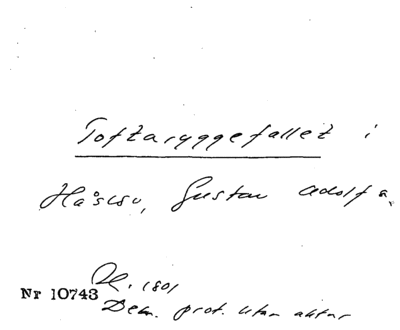 Toftaryggefallet i
Håslöv, Gustav Adolf a.
Nr 10743
Dec. 1801
Dekn. prot. utan aktur